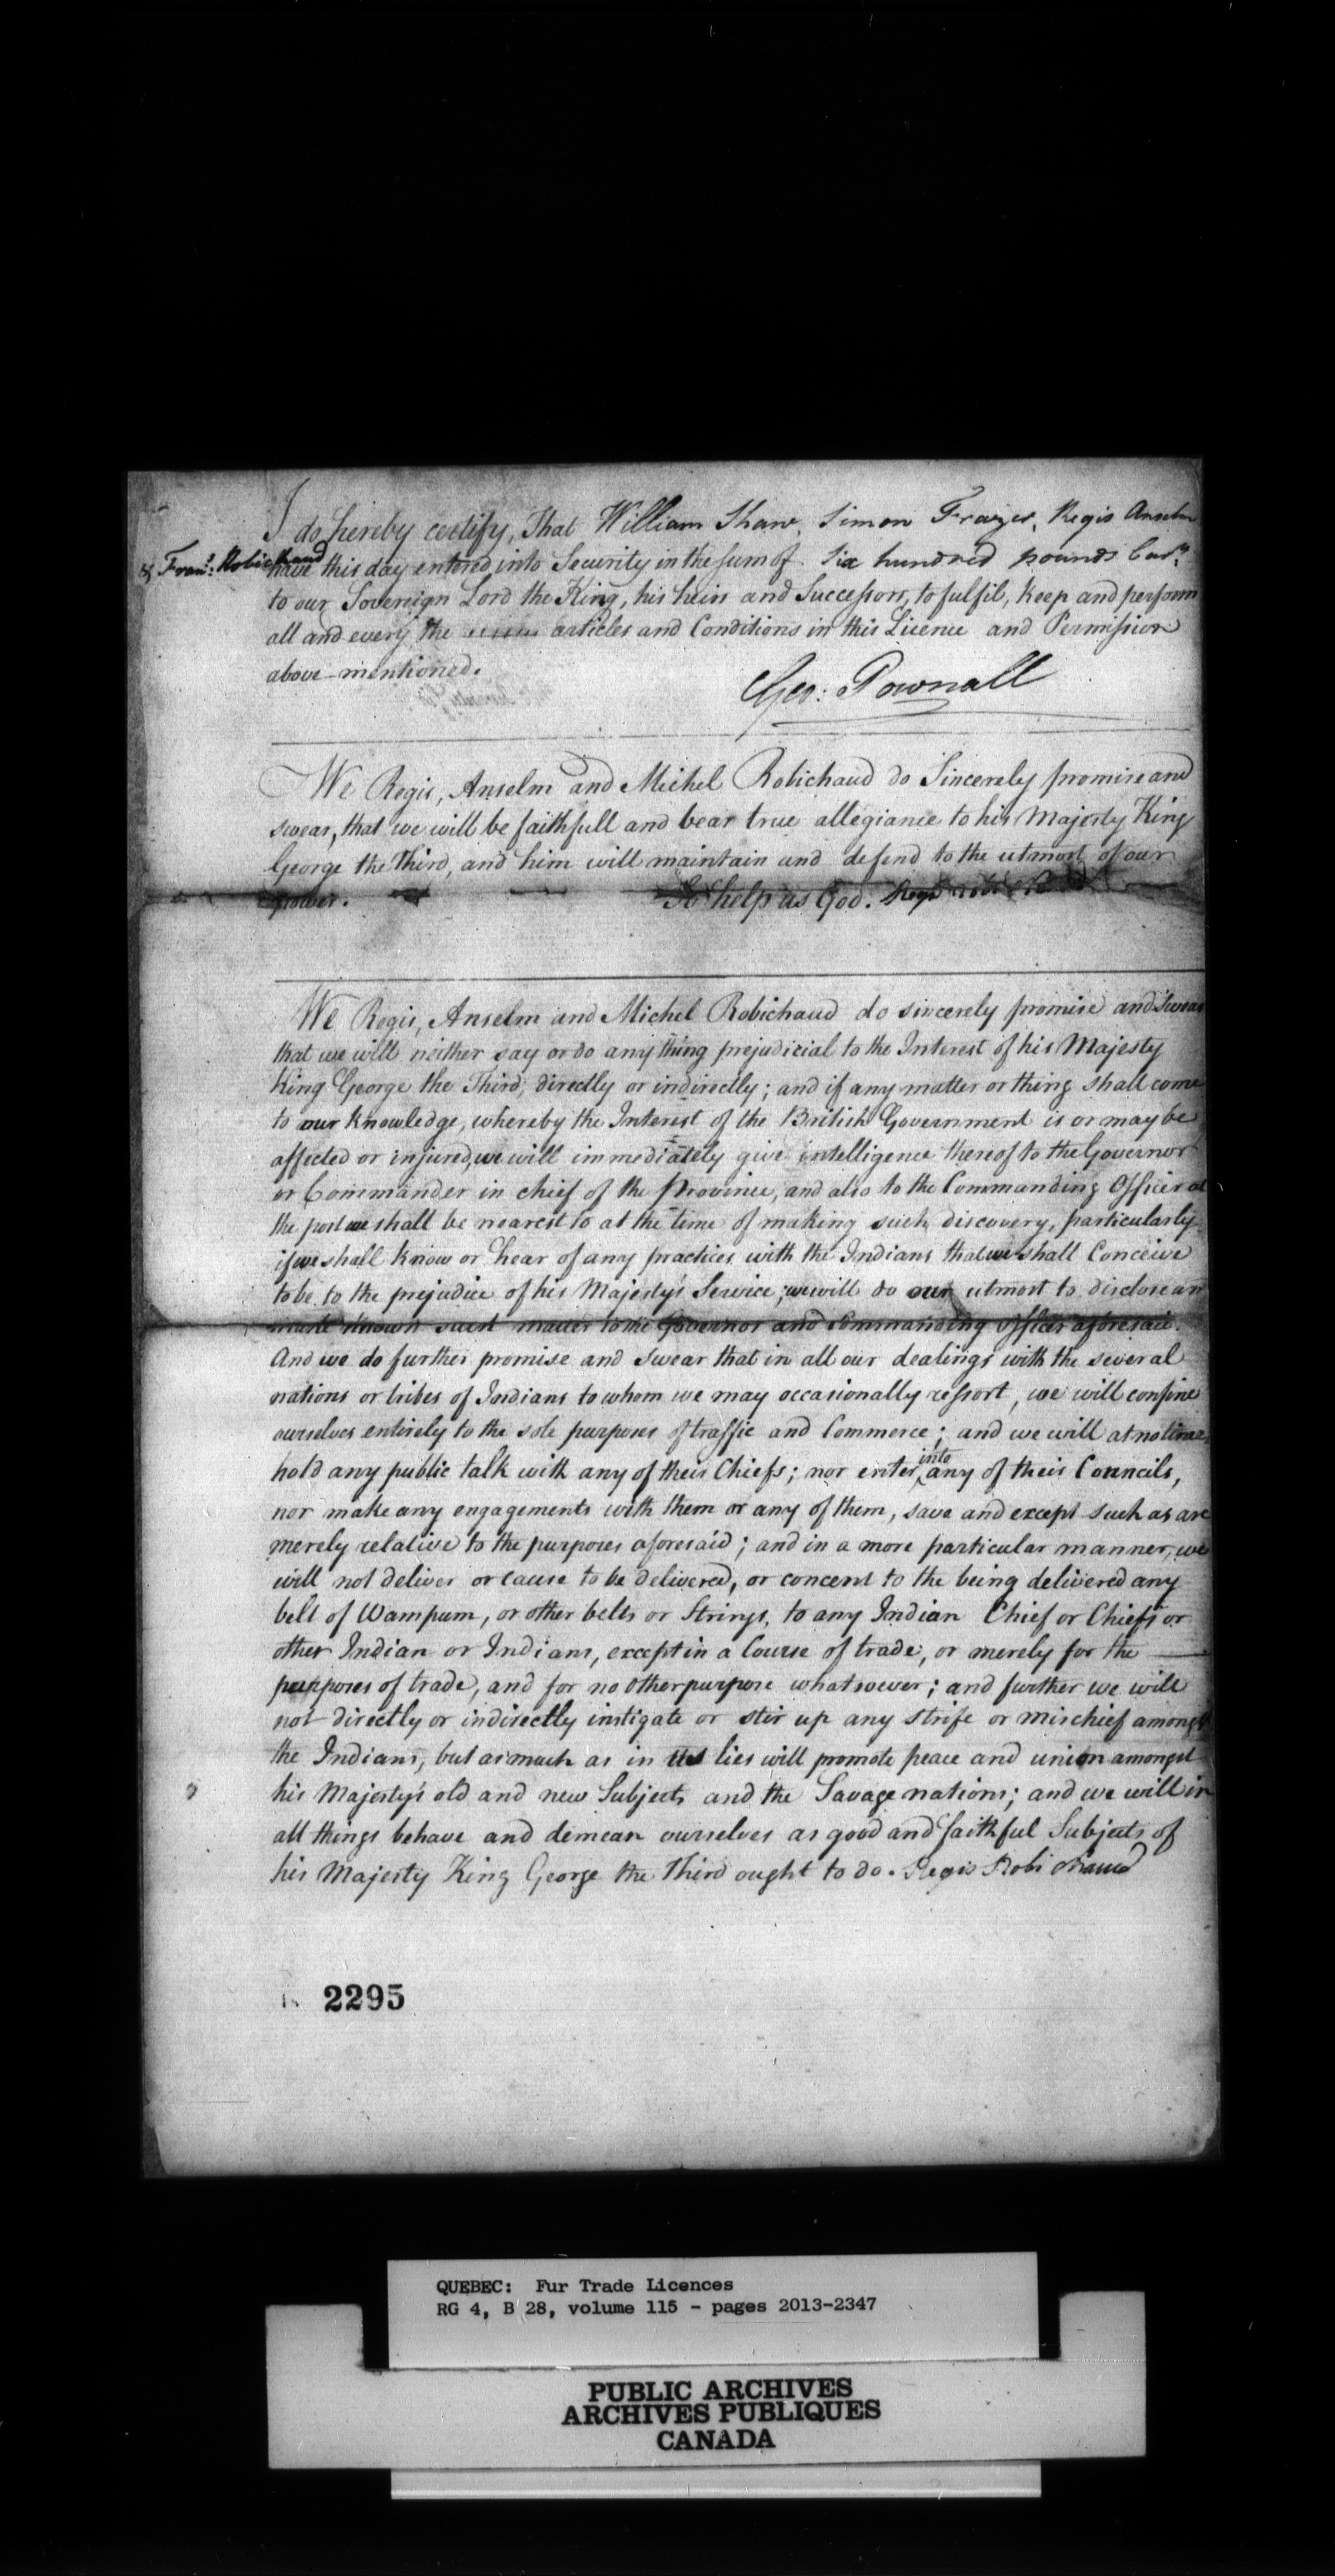 I do hereby certify, That William Shaw, Simon Frazer, Regis Anselm
& Frans. Robichaud have this day entered into Security in the sum of Six hundred pounds Curcy.
to our Sovereign Lord the King, his heirs and Successors, to fulfil, keep and perform
all and every the articles and Conditions in this Licence and Permission
above-mentioned.
Geo: Pownall
We Regis, Anselm and Michel Robichaud do Sincerely promise and
swear, that we will be faithfull and bear true allegiance to his Majesty King
George the Third, and him will maintain and defend to the utmost of our
power. So help us God. Regis
We Regis, Anselm and Michel Robichaud do sincerely promise and Swear
that we will neither say or do any thing prejudicial to the Interest of his Majesty
King George the Third, directly or indirectly; and if any matter or thing shall come
to our knowledge, whereby the Interest of the British Government is or may be
affected or injured, we will immediately give intelligence thereof to the Governor
or Commander in chief of the Province, and also to the Commanding Officer at
the post we shall be nearest to at the time of making such discovery, particularly
if we shall know or hear of any practices with the Indians that we shall Conceive
to be to the prejudice of his Majesty's Service; we will do our utmost to disclose an
make known such matter to the Governor and Commanding officer aforesaid.
And we do further promise and swear that in all our dealings with the several
nations or tribes of Indians to whom we may occasionally resort, we will confine
ourselves entirely to the sole purposes of traffic and Commerce; and we will at no time
hold any public talk with any of their Chiefs; nor enter into any of their Councils,
nor make any engagements with them or any of them, save and except such as are
merely relative to the purposes aforesaid; and in a more particular manner, we
will not deliver or cause to be delivered, or concent to the being delivered any
belt of Wampum, or other belts or Strings, to any Indian Chief or Chiefs or
other Indian or Indians, except in a Course of trade, or merely for the
purposes of trade, and for no other purpose whatsoever; and further we will
not directly or indirectly instigate or stir up any strife or mischief amongst
the Indians, but as much as in us lies will promote peace and union amongst
his Majesty's old and new Subjects and the Savage nations; and we will in
all things behave and demean ourselves as good and faithful Subjects of
his Majesty King George the Third ought to do. Regis Robichaud
2295
QUEBEC: Fur Trade Licences
RG 4, B 28, volume 115 - pages 2013-2347
PUBLIC ARCHIVES
ARCHIVES PUBLIQUES
CANADA